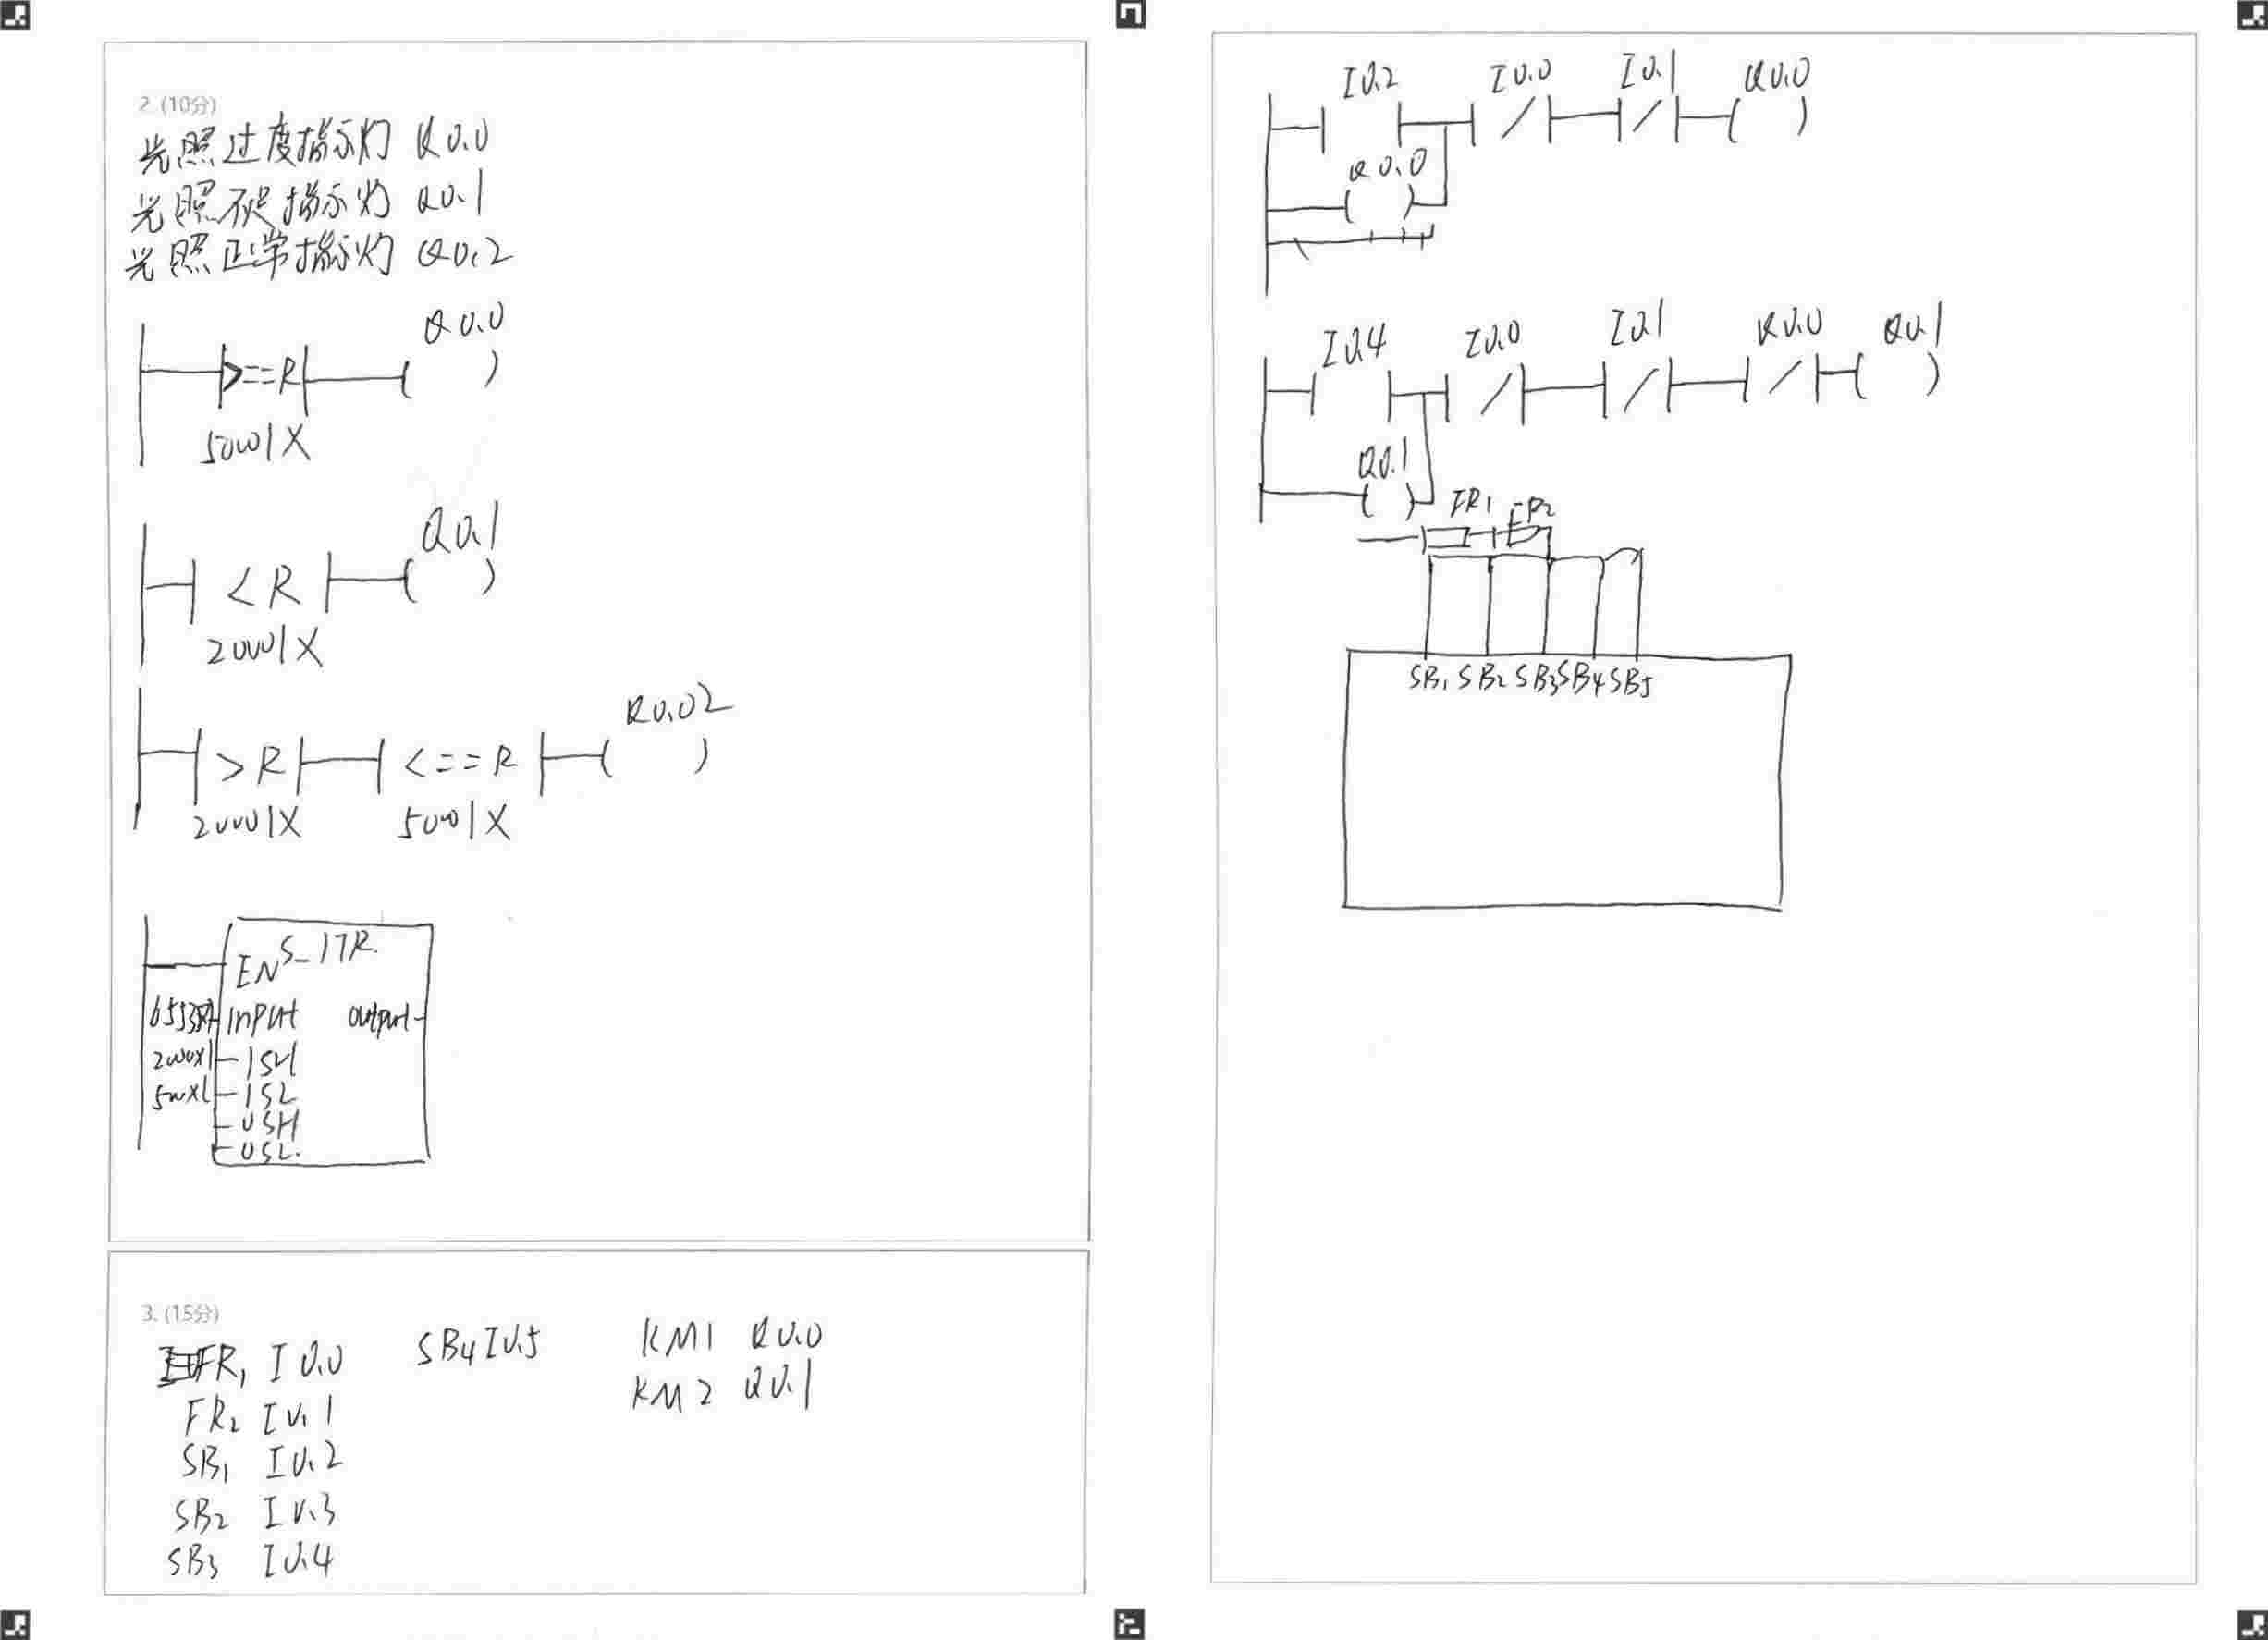 2. (10分)
光照过度指示灯 Q0.0
光照不足指示灯 Q0.1
光照正常指示灯 Q0.2
Q0.0
>==R
5000lX
Q0.1
<R
2000lX
Q0.02
>R <==R
2000lX 5000lX
S_ITR
EN
INPUT output
ISH
ISL
OSH
OSL.
3. (15分)
FR1 I0.0 SB4 I0.5 KM1 Q0.0
FR2 I0.1 KM2 Q0.1
SB1 I0.2
SB2 I0.3
SB3 I0.4
I0.2 I0.0 I0.1 Q0.0
Q0.0
I0.4 I0.0 I0.1 Q0.0 Q0.1
Q0.1
FR1 FR2
SB1 SB2 SB3 SB4 SB5